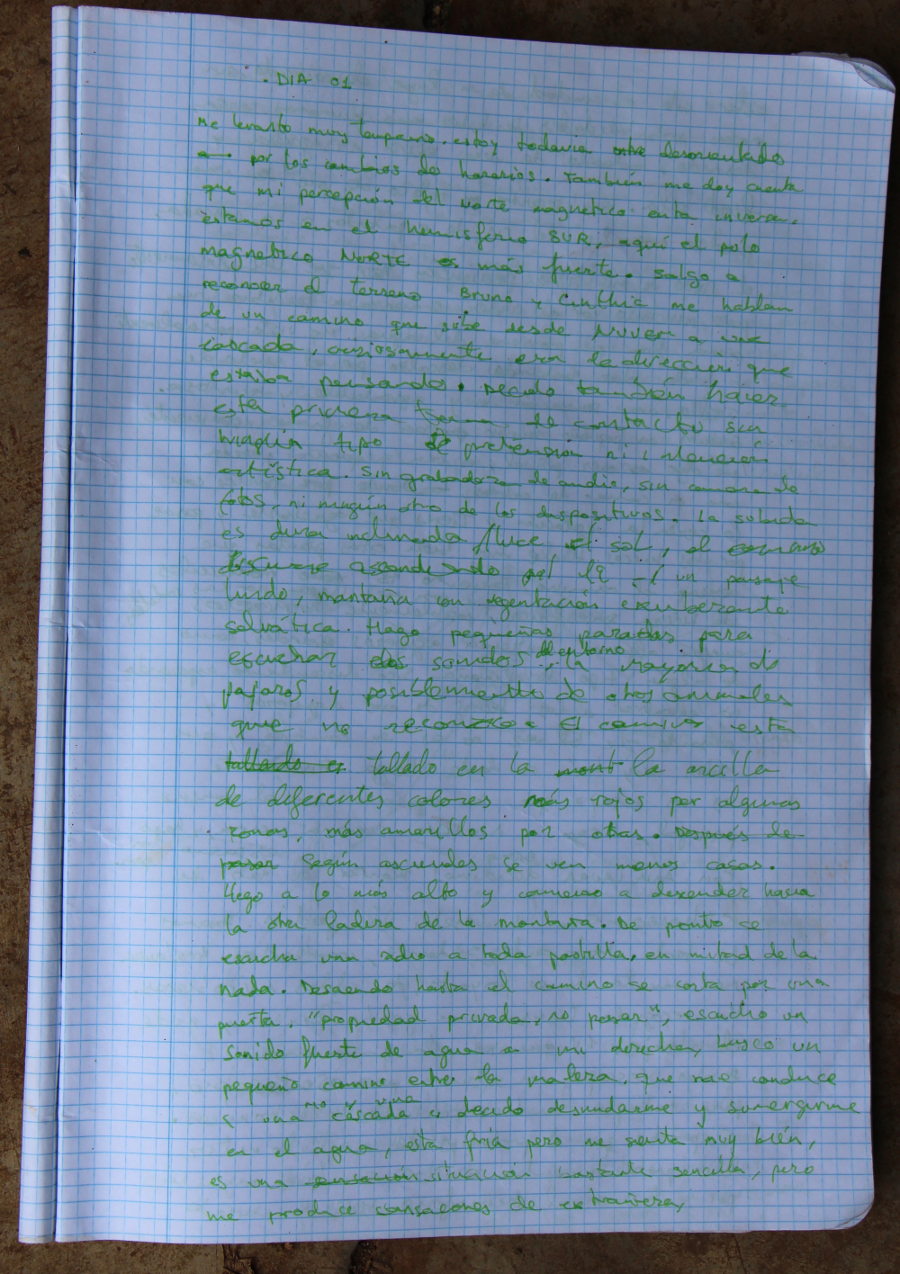 . DIA 01
me levanto muy temprano. estoy todavia entre desorientado
por los cambios de horarios. También me doy cuenta
que mi percepción del norte magnetico esta inversa.
estamos en el hemisferio SUR, aquí el polo
magnetico NORTE es más fuerte. Salgo a
reconocer el terreno Bruno y Cinthia me hablan
de un camino que sube desde NUVEM a una
cascada, curiosamente era la dirección que
estaba pensando. Decido también hacer
esta primera toma de contacto sin
ningún tipo de pretensión ni intención
artística. Sin grabadora de audio, sin camara de
fotos, ni ningún otro de los dispositivos. La subida
es dura inclinada, luce el sol, el camino
discurre ascendiendo por un paisaje
lindo, montaña con vegentación exuberante
selvática. Hago pequeñas paradas para
escuchar los sonidos del entorno, la mayoria de
pajaros y posiblemente de otros animales
que no reconozco. El camino está
tallado e tallado en la mont la arcilla
de diferentes colores más rojos por algunas
zonas, más amarillos por otras. Después de
pasar según asciendes se ven menos casas.
llego a lo más alto y comienzo a descender hacia
la otra ladera de la montaña. De pronto se
escucha una radio a toda pastilla, en mitad de la
nada. Desciendo hasta el camino se corta por una
puerta, "propiedad privada, no pasar", escucho un
sonido fuerte de agua a mi derecha, busco un
pequeño camino entre la maleza, que me conduce
a una cascada y decido desnudarme y sumergirme
en el agua, esta fría pero me sienta muy bien,
es una sensación situación bastante sencilla, pero
me produce sensaciones de extrañeza,